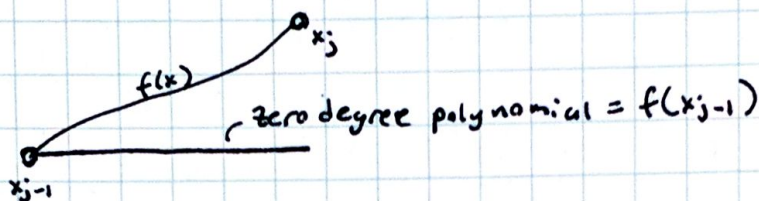 x_j
f(x)
zero degree polynomial = f(x_{j-1})
x_{j-1}